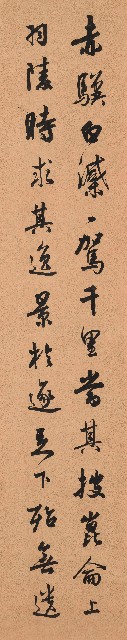 赤驥白一駕千里當其披崑崙上
羽陵時求其逸景於逐足下殆無遺